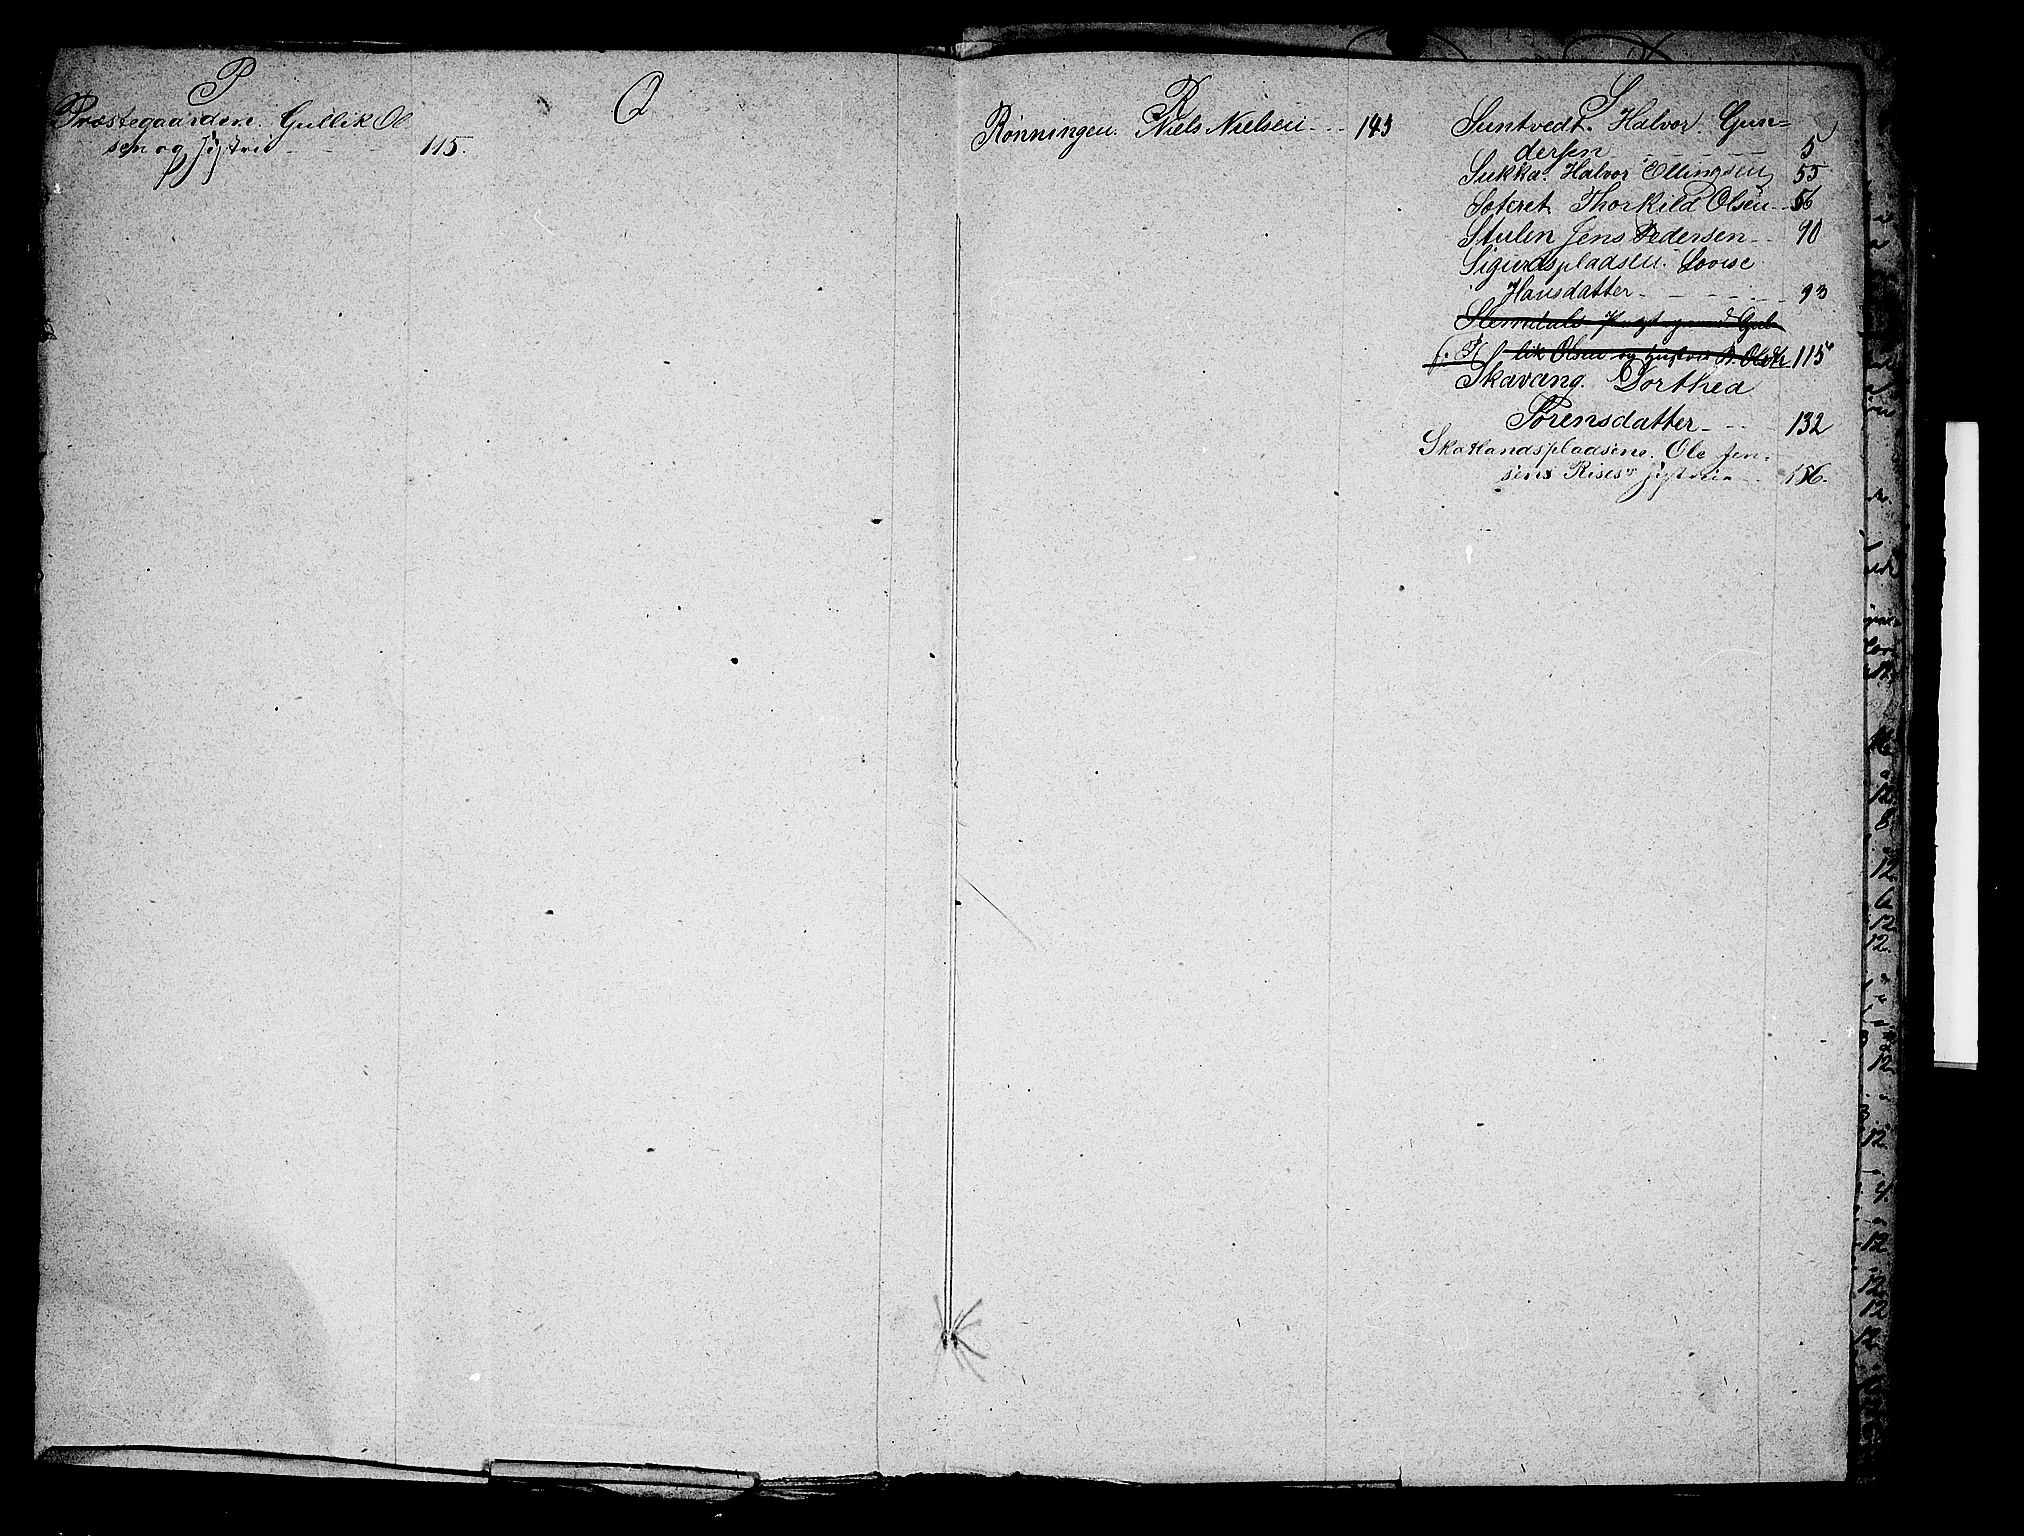 P
Præstegaarden. Gullik Ol
sen og Hustru - - - 115.
Q
R
Rønningen. Niels Nielsen - - - 143
S
Suntvedt. Halvor Gun=
dersen - - - - - 5
Sukka. Halvor Ellingsen 55
Thorkild Olsen - - 56
Stulen Jens Pedersen - - 90
Sigurdspladsen. Lovise
Hansdatter - - - - - 93
Gul
lik Olsen og Hustru 115
Skavang. Dorthea
Sørensdatter - - - 132
Skatlandspladsene. Ole Jen-
sens Rises Hustru - - 156.